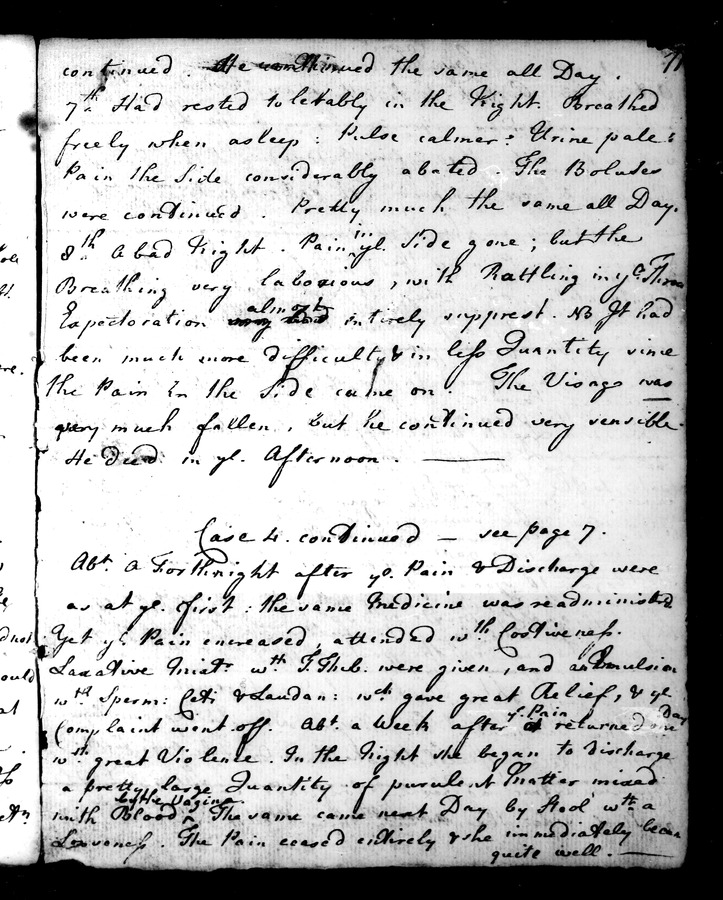 11
continued. He continued the same all Day.
7th. Had rested tolerably in the Night. Breathed
freely when asleep: Pulse calmer: Urine pale:
Pain the Side considerably abated. The Boluses
were continued. Pretty much the same all Day.
8th A bad Night. Pain in ye. Side gone; but the
Breathing very laborious, with Rattling in ye. Throa
Expectoration almost intirely supprest. NB It had
been much more difficult, & in less Quantity since
the Pain in the Side came on. The Visage was
very much fallen, but he continued very sensible.
He died in ye. Afternoon.
Case 4. continued — see page 7.
Abt. a Forthnight after ye. Pain & Discharge were
as at ye. first: the same Medicine was readministred
Yet ye. Pain increased, attended wth Costiveness.
Laxative Mixt. wth T. Theb. were given, and an Emulsion
wth Sperm: Ceti & Laudan: wch gave great Relief, & ye
Complaint went off. Abt. a Week after ye Pain returned one Day
wth great Violence. In the Night she began to discharge
a pretty large Quantity of purulent Matter mixed
with Blood by the Vagina. The same came next Day by Stool wth a
Looseness. The Pain ceased entirely & she immediately becam
quite well.